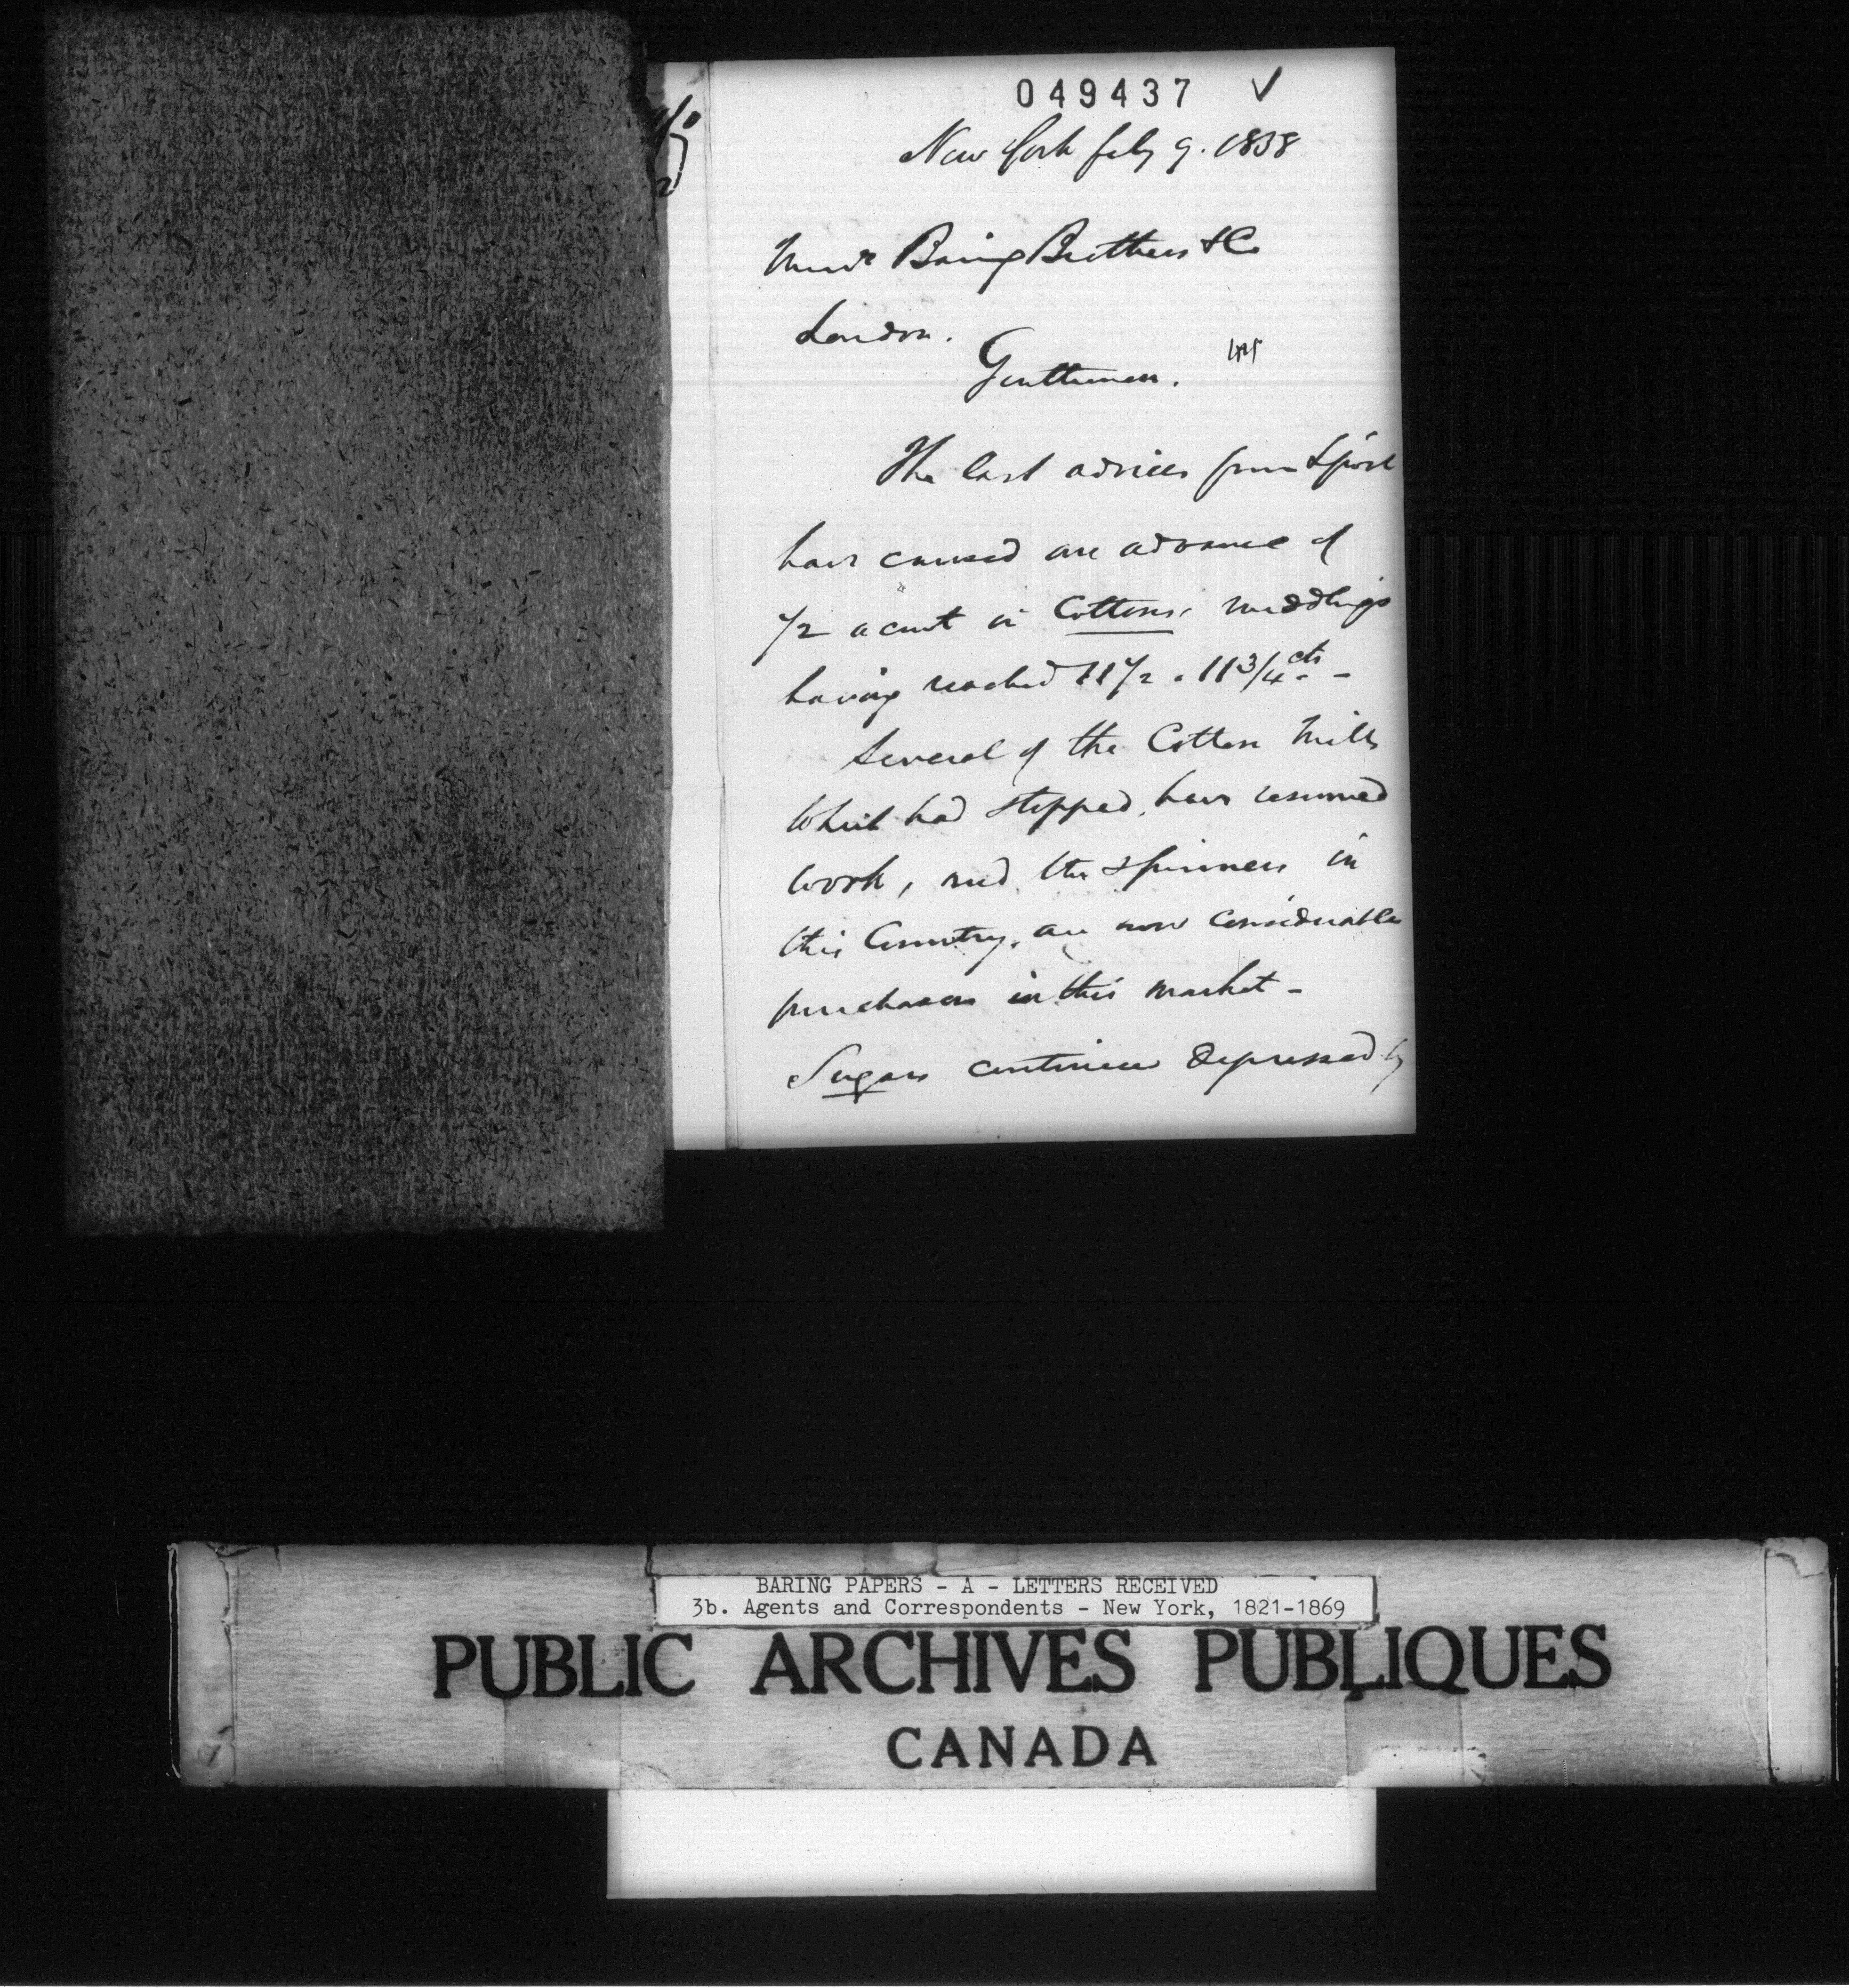 049437 ✓
New York July 9. 1838
Messrs Baring Brothers & Co
London.
Gentlemen.
The last advices from Lpool
have caused an advance of
1/2 a cent in Cottons, middlings
having reached 11 1/2 a 11 3/4 cts. -
Several of the Cotton Mills
which had stopped, have resumed
work, and the spinners in
this Country, are now considerable
purchasers in this market -
Sugars continue depressed by
BARING PAPERS - A - LETTERS RECEIVED
3b. Agents and Correspondents - New York, 1821-1869
PUBLIC ARCHIVES PUBLIQUES
CANADA